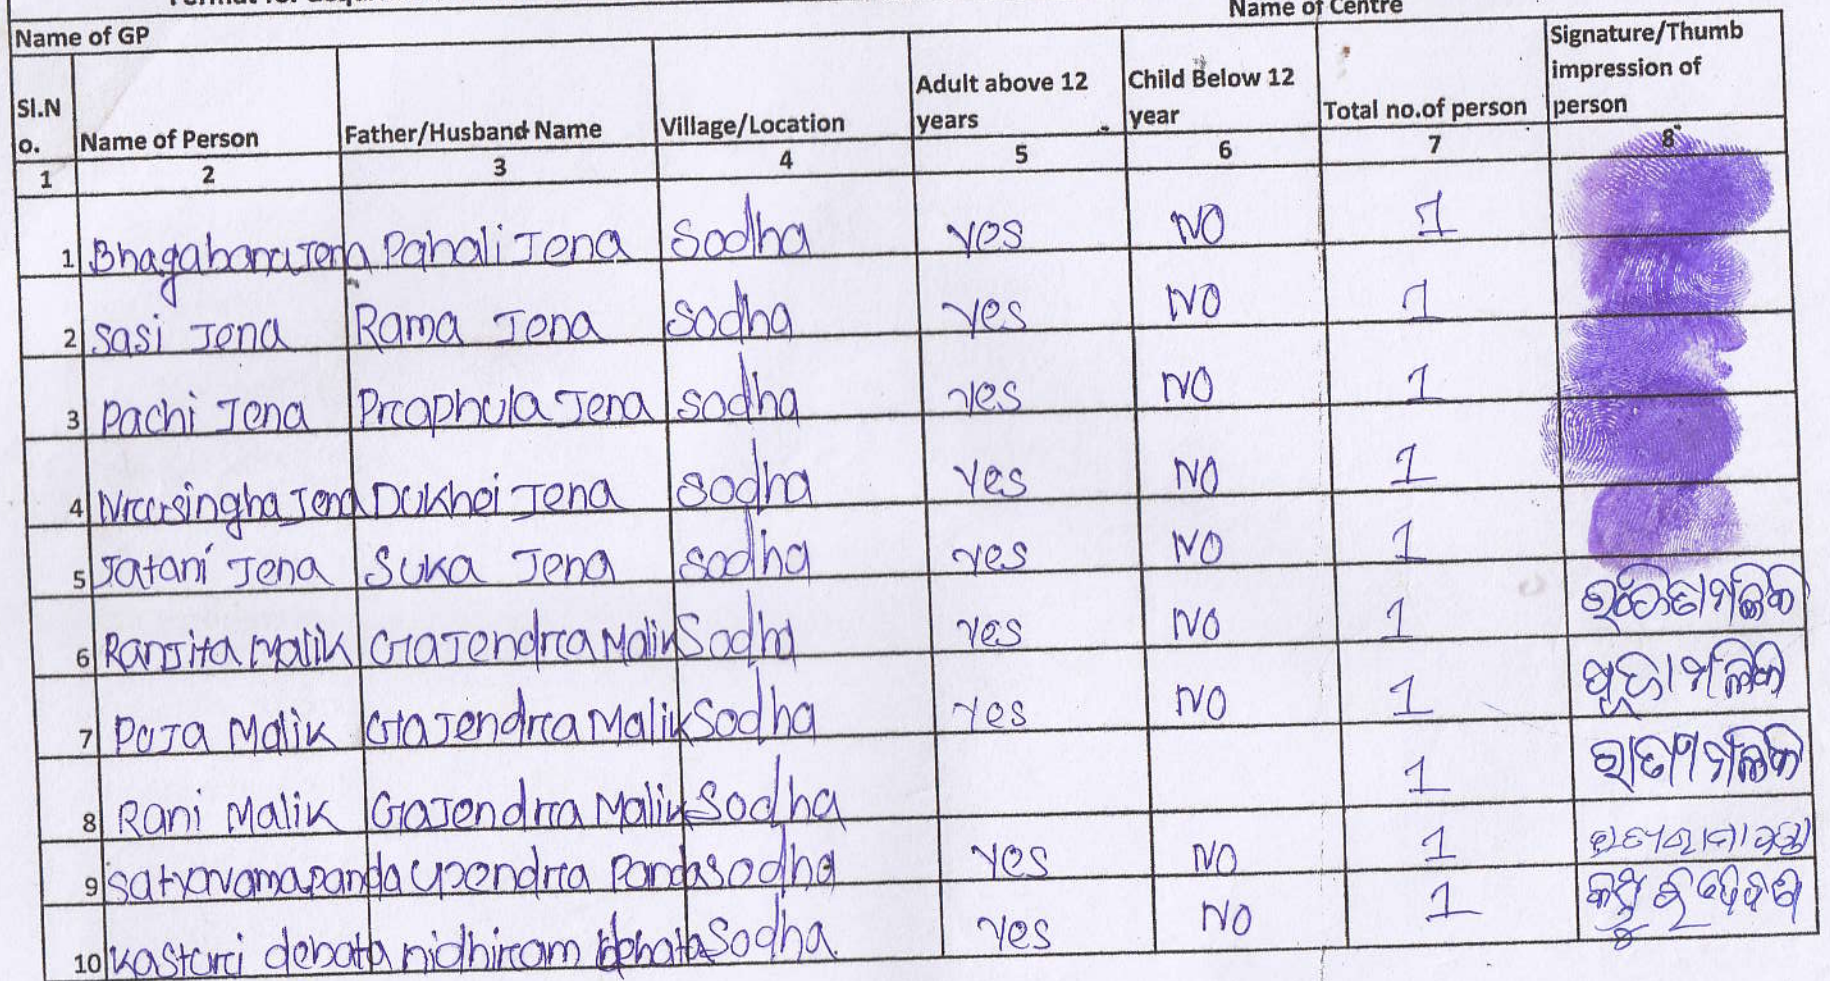 Name of Centre
Name of GP
Sl.No. Name of Person Father/Husband Name Village/Location Adult above 12 years Child Below 12 year Total no.of person Signature/Thumb impression of person
1 2 3 4 5 6 7 8
1 Bhagabana Jena Pahali Jena Sodha yes NO 1
2 Sasi Jena Rama Jena Sodha yes NO 1
3 Pachi Jena Prcaphula Jena sodha yes NO 1
4 Nrccrsingha Jena Dukhei Jena sodha yes NO 1
5 Jatani Jena Suka Jena sodha yes NO 1
6 Ranjita Malik Gajendrca Malik Sodha yes NO 1
7 Puja Malik Gajendrca Malik Sodha yes NO 1 ପୂଜା ମଲିକ
8 Rani Malik Gajendrca Malik Sodha 1
9 Satyavama panda Upendrca Panda sodha yes NO 1
10 Kasturci debata nidhircam debata Sodha yes NO 1